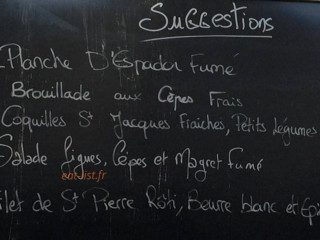 Suggestions
Planche D'Espadon Fumé
Brouillade aux Cèpes Frais
Coquilles St Jacques Fraiches, Petits Légumes
Salade figues, Cèpes et Magret fumé
eat-list.fr
ilet de St Pierre Rôti, Beurre blanc et Epi